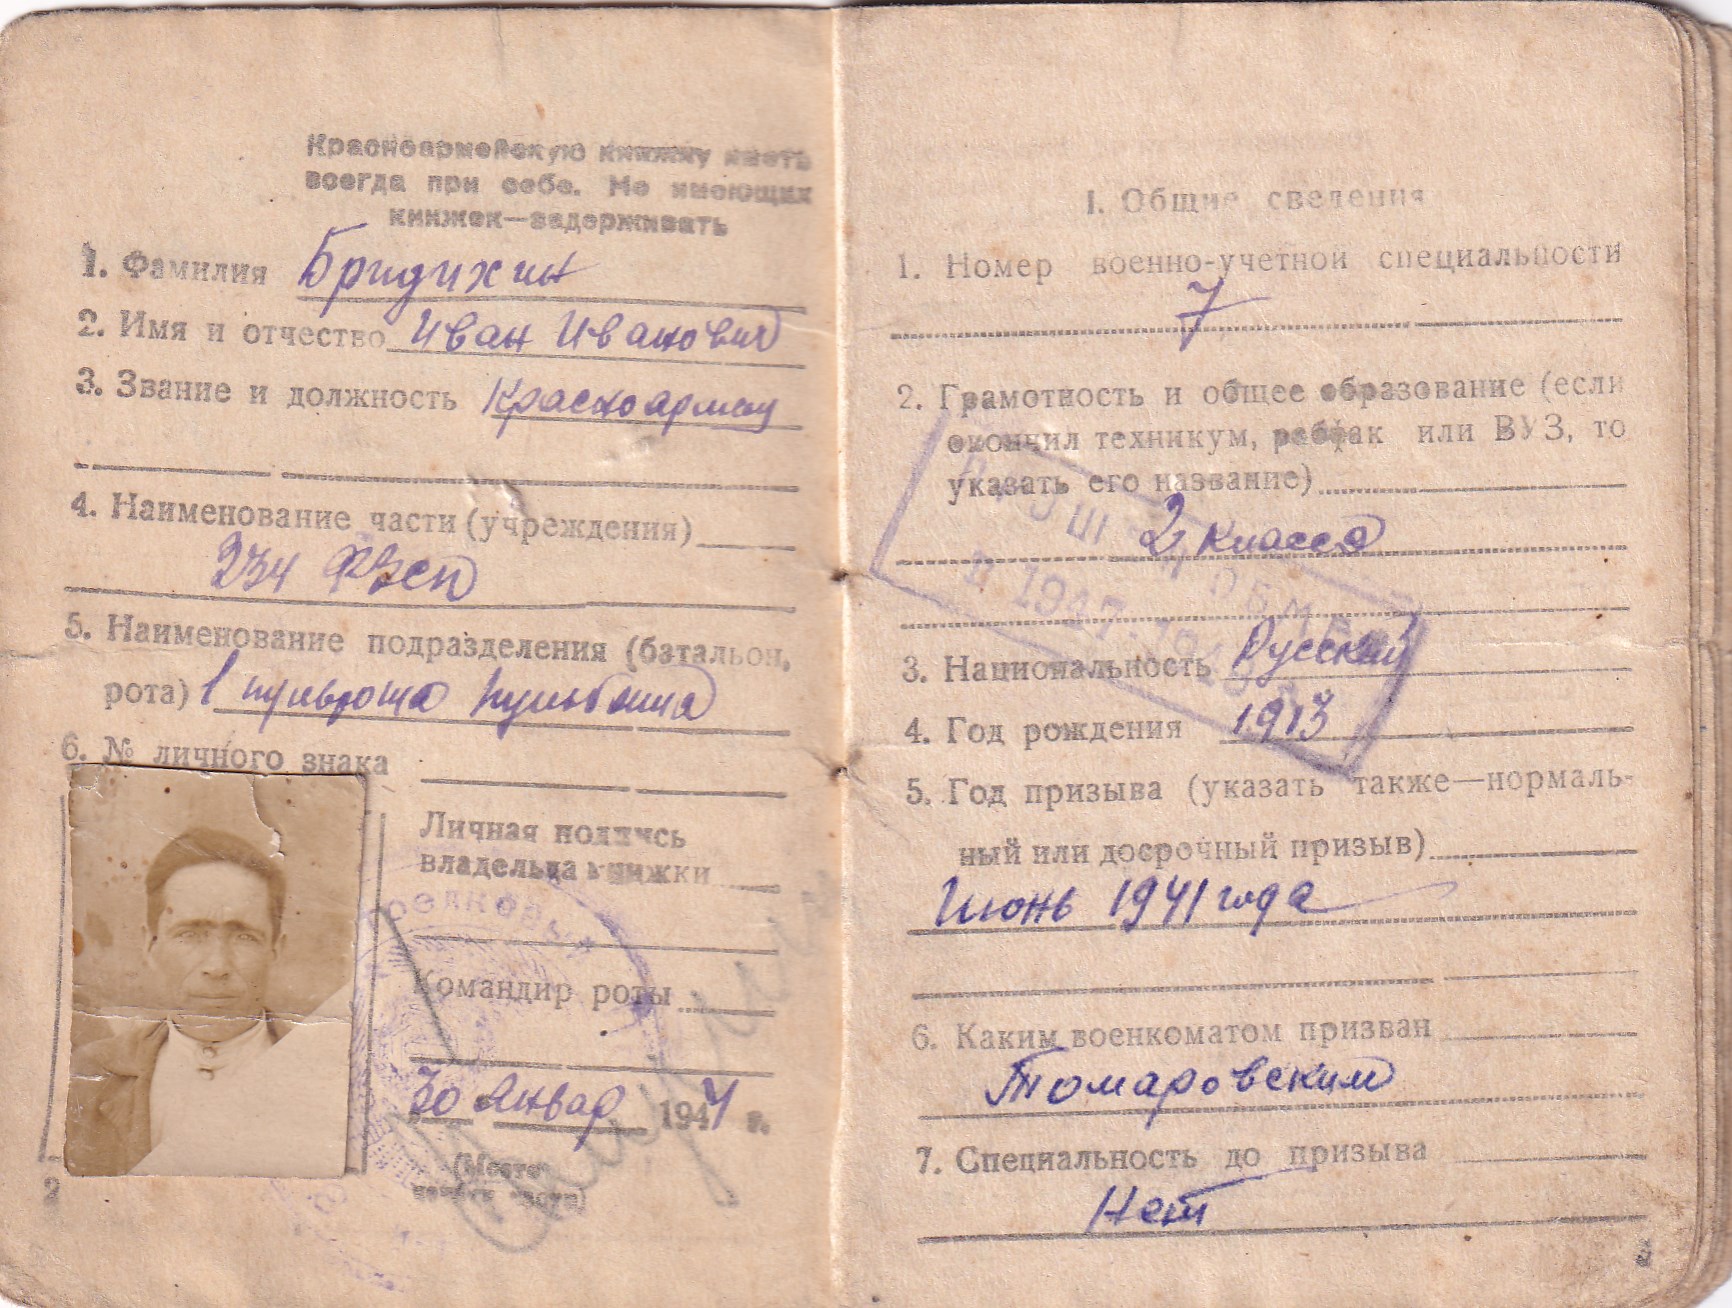 Красноармейскую книжку иметь
всегда при себе. Не имеющих
книжек—задерживать
1. Фамилия Бридихин
2. Имя и отчество Иван Иванович
3. Звание и должность Красноармеец
4. Наименование части (учреждения)
234 ФЗСП
5. Наименование подразделения (батальон,
рота) 1 пульрота пульбата
6. № личного знака
Личная подпись
владельца книжки
Командир роты
30 Январ 1944 г.
(Место
печати части)
2
I. Общие сведения
1. Номер военно-учетной специальности
7
2. Грамотность и общее образование (если
окончил техникум, рабфак или ВУЗ, то
указать его название)
2 класса
3. Национальность Русский
4. Год рождения 1913
5. Год призыва (указать также—нормаль-
ный или досрочный призыв)
Июнь 1941 года
6. Каким военкоматом призван
Томаровским
7. Специальность до призыва
Нет